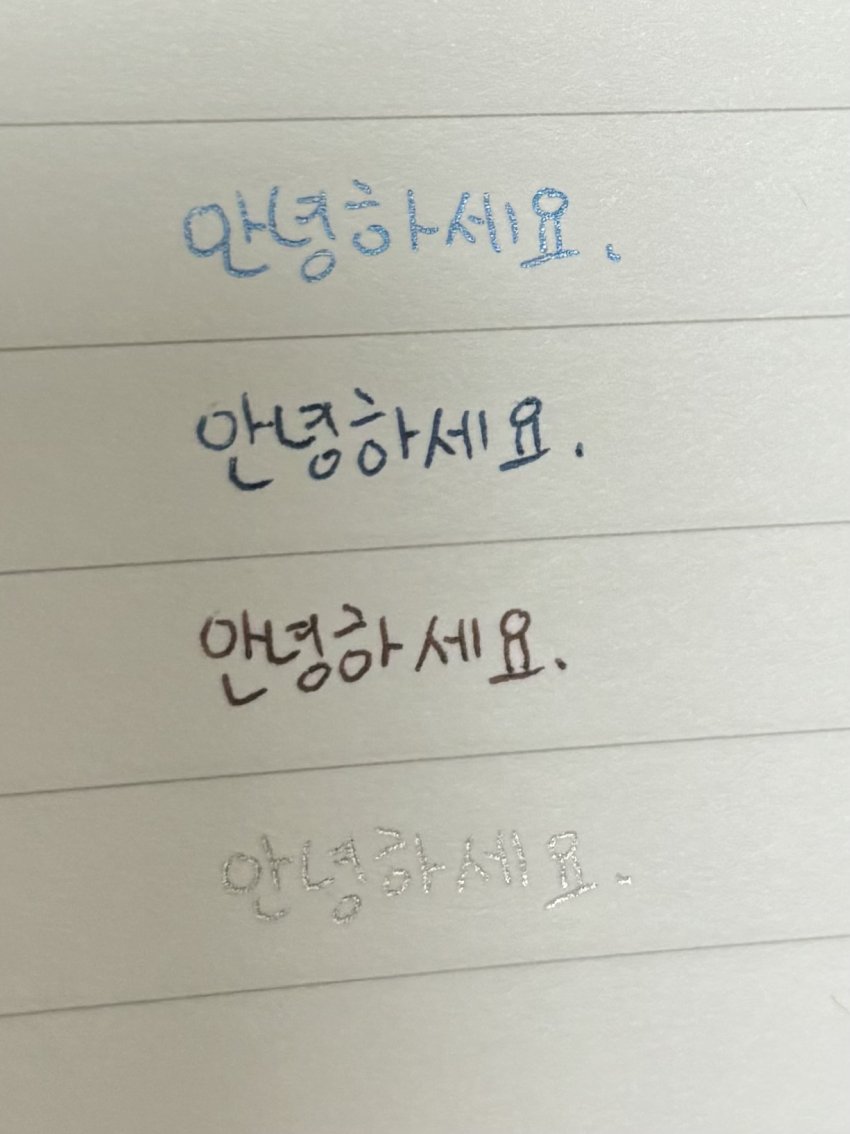 안녕하세요.
안녕하세요.
안녕하세요.
안녕하세요.